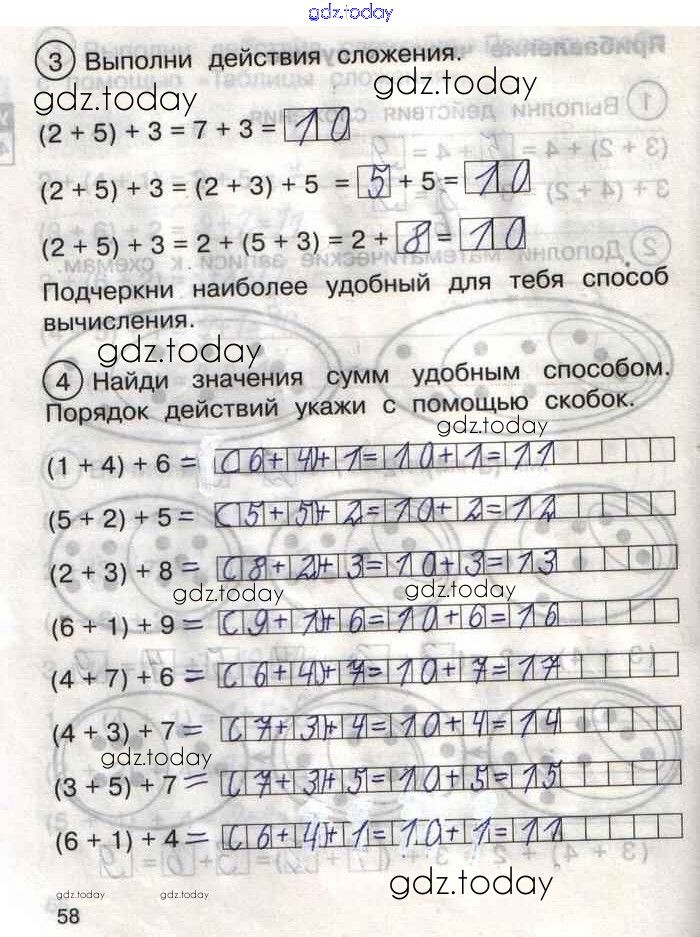 gdz.today
3 Выполни действия сложения.
gdz.today gdz.today
(2 + 5) + 3 = 7 + 3 = 10
(2 + 5) + 3 = (2 + 3) + 5 = 5 + 5 = 10
(2 + 5) + 3 = 2 + (5 + 3) = 2 + 8 = 10
Подчеркни наиболее удобный для тебя способ
вычисления.
gdz.today
4 Найди значения сумм удобным способом.
Порядок действий укажи с помощью скобок.
gdz.today
(1 + 4) + 6 = (6+4)+1=10+1=11
(5 + 2) + 5 = (5+5)+2=10+2=12
(2 + 3) + 8 = (8+2)+3=10+3=13
gdz.today gdz.today
(6 + 1) + 9 = (9+1)+6=10+6=16
(4 + 7) + 6 = (6+4)+7=10+7=17
(4 + 3) + 7 = (7+3)+4=10+4=14
gdz.today
(3 + 5) + 7 = (7+3)+5=10+5=15
(6 + 1) + 4 = (6+4)+1=10+1=11
gdz.today
gdz.today gdz.today
58